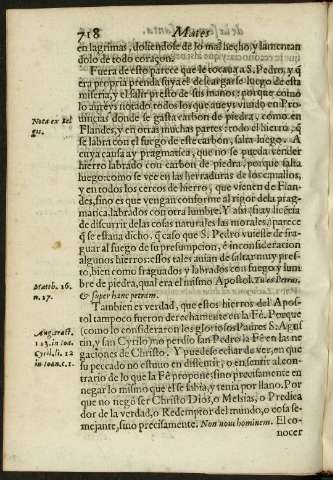 718 Martes
en lagrimas, doliendose de lo mal hecho, y lamentan
dolo de todo coraçon.
Fuera de esto parece que le tocaua a S. Pedro, y q̃
era propria prenda suya el descargarse luego de esta
miseria, y el salir presto de sus manos: porque como
lo aureys notado todos los que aueys viuido en Pro
uincias donde se gasta carbon de piedra, como en
Flandes, y en otras muchas partes: todo el hierro, q̃
se labra con el fuego de este carbon, salta luego. A
cuya causa ay pragmatica, que no se pueda vender
hierro labrado con carbon de piedra, porque salta
luego: como se vee en las herraduras de los cauallos,
y en todos los cercos de hierro, que vienen de Flan-
des, sino es que vengan conforme al rigor de la prag-
matica labrados con otra lumbre. Y assi, si ay licẽcia
de discurrir de las cosas naturales las morales, parece
q̃ se estaua dicho, q̃ caso que S. Pedro viniesse de fra-
guar al fuego de su presumpcion, è inconsideracion
algunos hierros: estos tales auian de saltar muy pres-
to, bien como fraguados y labrados con fuego y lum
bre de piedra, qual era el mismo Apostol. Tu es Petrus,
& super hanc petram.
Tambien es verdad, que estos hierros del Apos-
tol tampoco fueron derechamente en la Fè. Porque
(como lo consideraron los gloriosos Padres S. Agus
tin, y san Cyrilo) no perdio san Pedro la Fè en las ne
gaciones de Christo. Y puedese echar de ver, en que
su peccado no estuuo en dissentir, o en sentir al con-
trario de lo que la Fè propone; sino precisamente en
negar lo mismo que el se sabia, y tenia por llano. Por
que no negò ser Christo Dios, o Messias, o Predica
dor de la verdad, o Redemptor del mundo, o cosa se-
mejante, sino precisamente. Non noui hominem. El co-
nocer
Nota ex Bel
gis.
Matth. 16.
n. 17.
August. tract.
113. in Ioa.
Cyril. li. 12
in Ioan. c. 1.